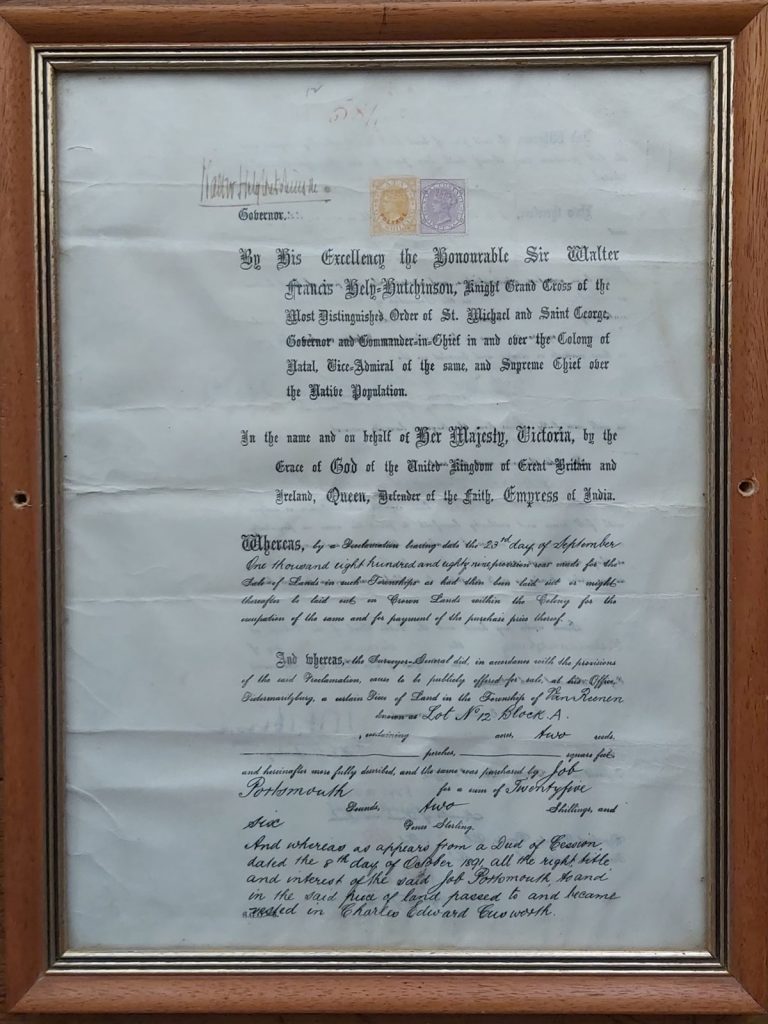 Walter Hely-Hutchinson
Governor.
NATAL
POSTAGE
By His Excellency the Honourable Sir Walter
Francis Hely-Hutchinson, Knight Grand Cross of the
Most Distinguished Order of St. Michael and Saint George,
Governor and Commander-in-Chief in and over the Colony of
Natal, Vice-Admiral of the same, and Supreme Chief over
the Native Population.
In the name and on behalf of Her Majesty, Victoria, by the
Grace of God of the United Kingdom of Great Britain and
Ireland, Queen, Defender of the Faith, Empress of India.
Whereas, by a Proclamation bearing date the 23rd day of September
One thousand eight hundred and eighty nine provision was made for the
Sale of Lands in such Townships as had then been laid out or might
thereafter be laid out on Crown Lands within the Colony for the
occupation of the same and for payment of the purchase price thereof.
And whereas, the Surveyor-General did, in accordance with the provisions
of the said Proclamation, cause to be publicly offered for sale, at his Office,
Pietermaritzburg, a certain Piece of Land in the Township of Van Reenen
known as Lot No 12 Block A.
, containing acres, two roods,
perches, square feet
and hereinafter more fully described, and the same was purchased by Job
Portsmouth for a sum of Twentyfive
Pounds, two Shillings, and
six Pence Sterling.
And whereas as appears from a Deed of Cession,
dated the 8th day of October 1891, all the right title
and interest of the said Job Portsmouth, to and
in the said piece of land passed to and became
vested in Charles Edward Cusworth.